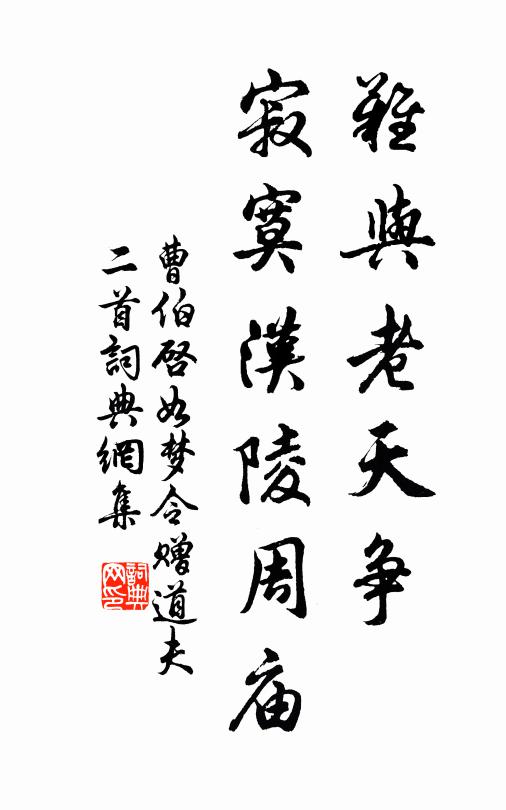 難與老天争
寂寞漢陵周庙
曹伯啓如梦令赠道夫
二首詞典網集
詞典网印